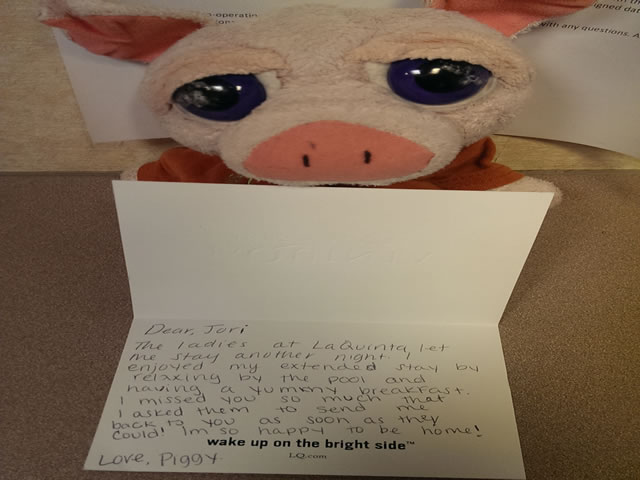 co-operatin
igned dat
with any questions. A
Dear, Jori
The ladies at LaQuinta let
me stay another night. I
enjoyed my extended stay by
relaxing by the pool and
having a yummy breakfast.
I missed you so much that
I asked them to send me
back to you as soon as they
could! Im so happy to be home!
wake up on the bright side™
LQ.com
Love, Piggy